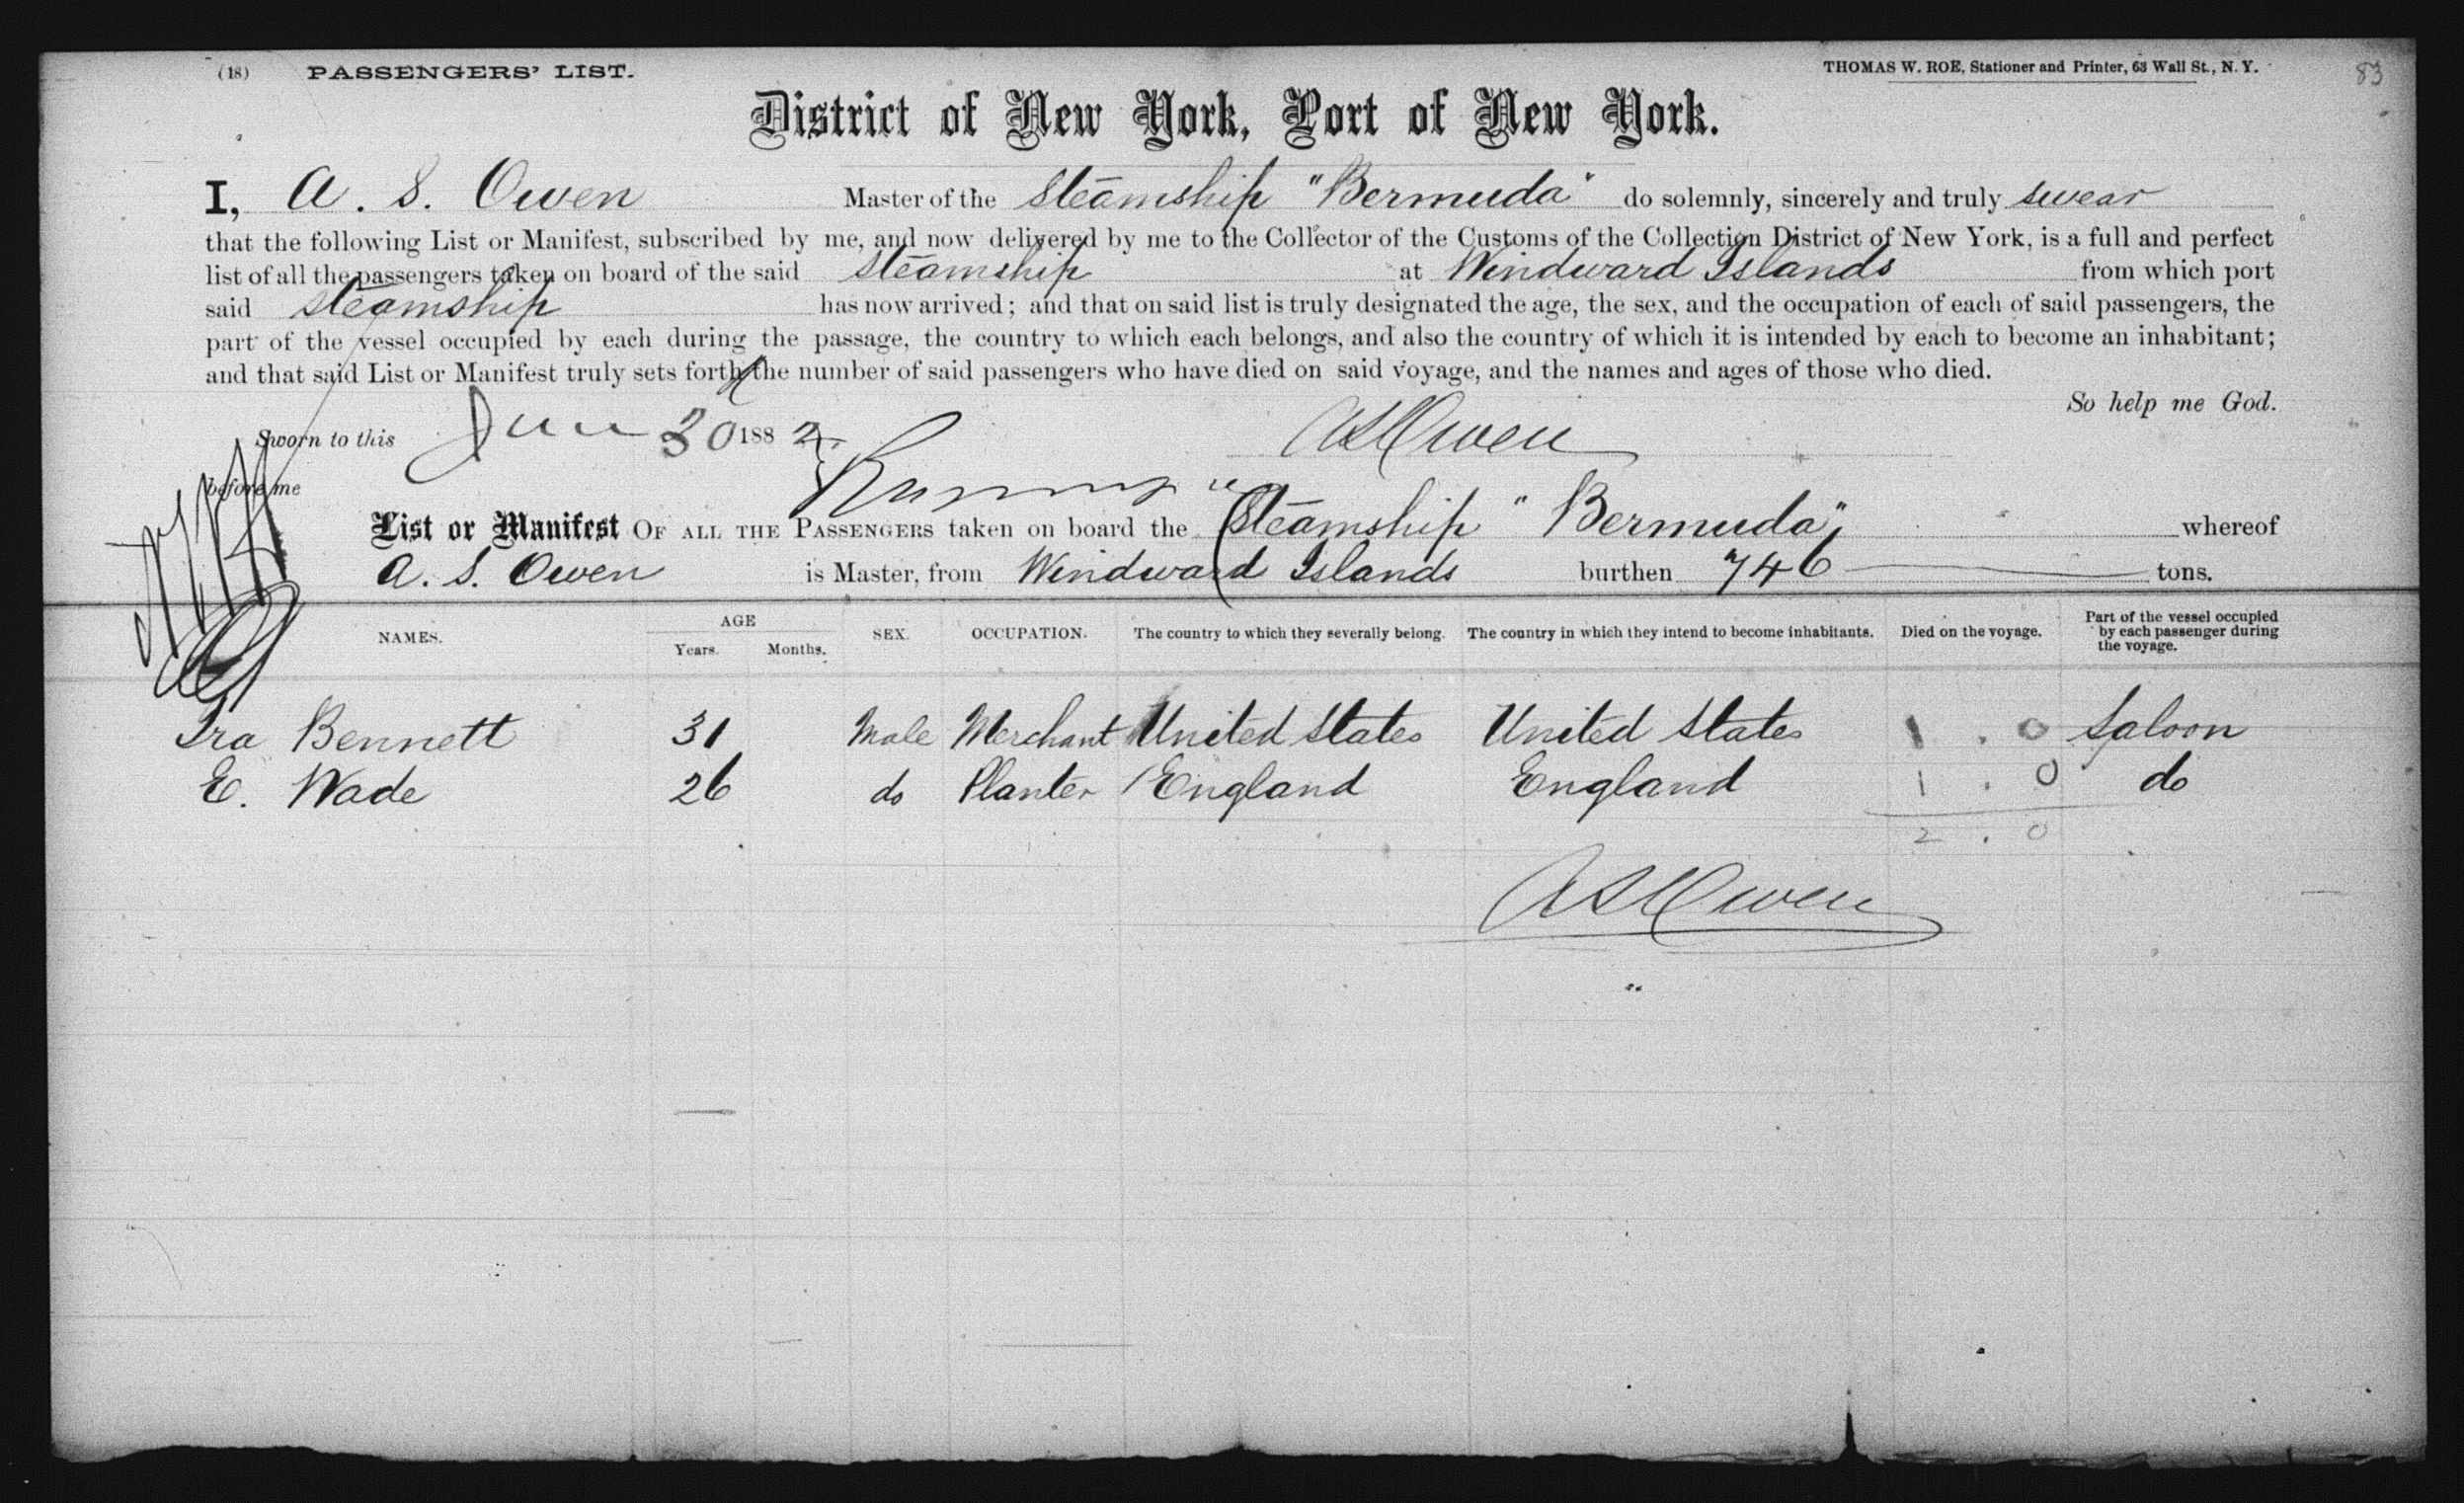 (18) PASSENGERS' LIST. THOMAS W. ROE, Stationer and Printer, 63 Wall St., N. Y. 83
District of New York, Port of New York.
I, A. S. Owen Master of the Steamship "Bermuda" do solemnly, sincerely and truly swear
that the following List or Manifest, subscribed by me, and now delivered by me to the Collector of the Customs of the Collection District of New York, is a full and perfect
list of all the passengers taken on board of the said Steamship at Windward Islands from which port
said Steamship has now arrived; and that on said list is truly designated the age, the sex, and the occupation of each of said passengers, the
part of the vessel occupied by each during the passage, the country to which each belongs, and also the country of which it is intended by each to become an inhabitant;
and that said List or Manifest truly sets forth the number of said passengers who have died on said voyage, and the names and ages of those who died.
So help me God.
Sworn to this June 30 1882 A S Owen
before me
List or Manifest OF ALL THE PASSENGERS taken on board the Steamship "Bermuda" whereof
A. S. Owen is Master, from Windward Islands burthen 746 tons.
NAMES. AGE Years. Months. SEX. OCCUPATION. The country to which they severally belong. The country in which they intend to become inhabitants. Died on the voyage. Part of the vessel occupied by each passenger during the voyage.
Ira Bennett 31 Male Merchant United States United States 1 . 0 Saloon
E. Wade 26 do Planter England England 1 . 0 do
2 . 0
A S Owen